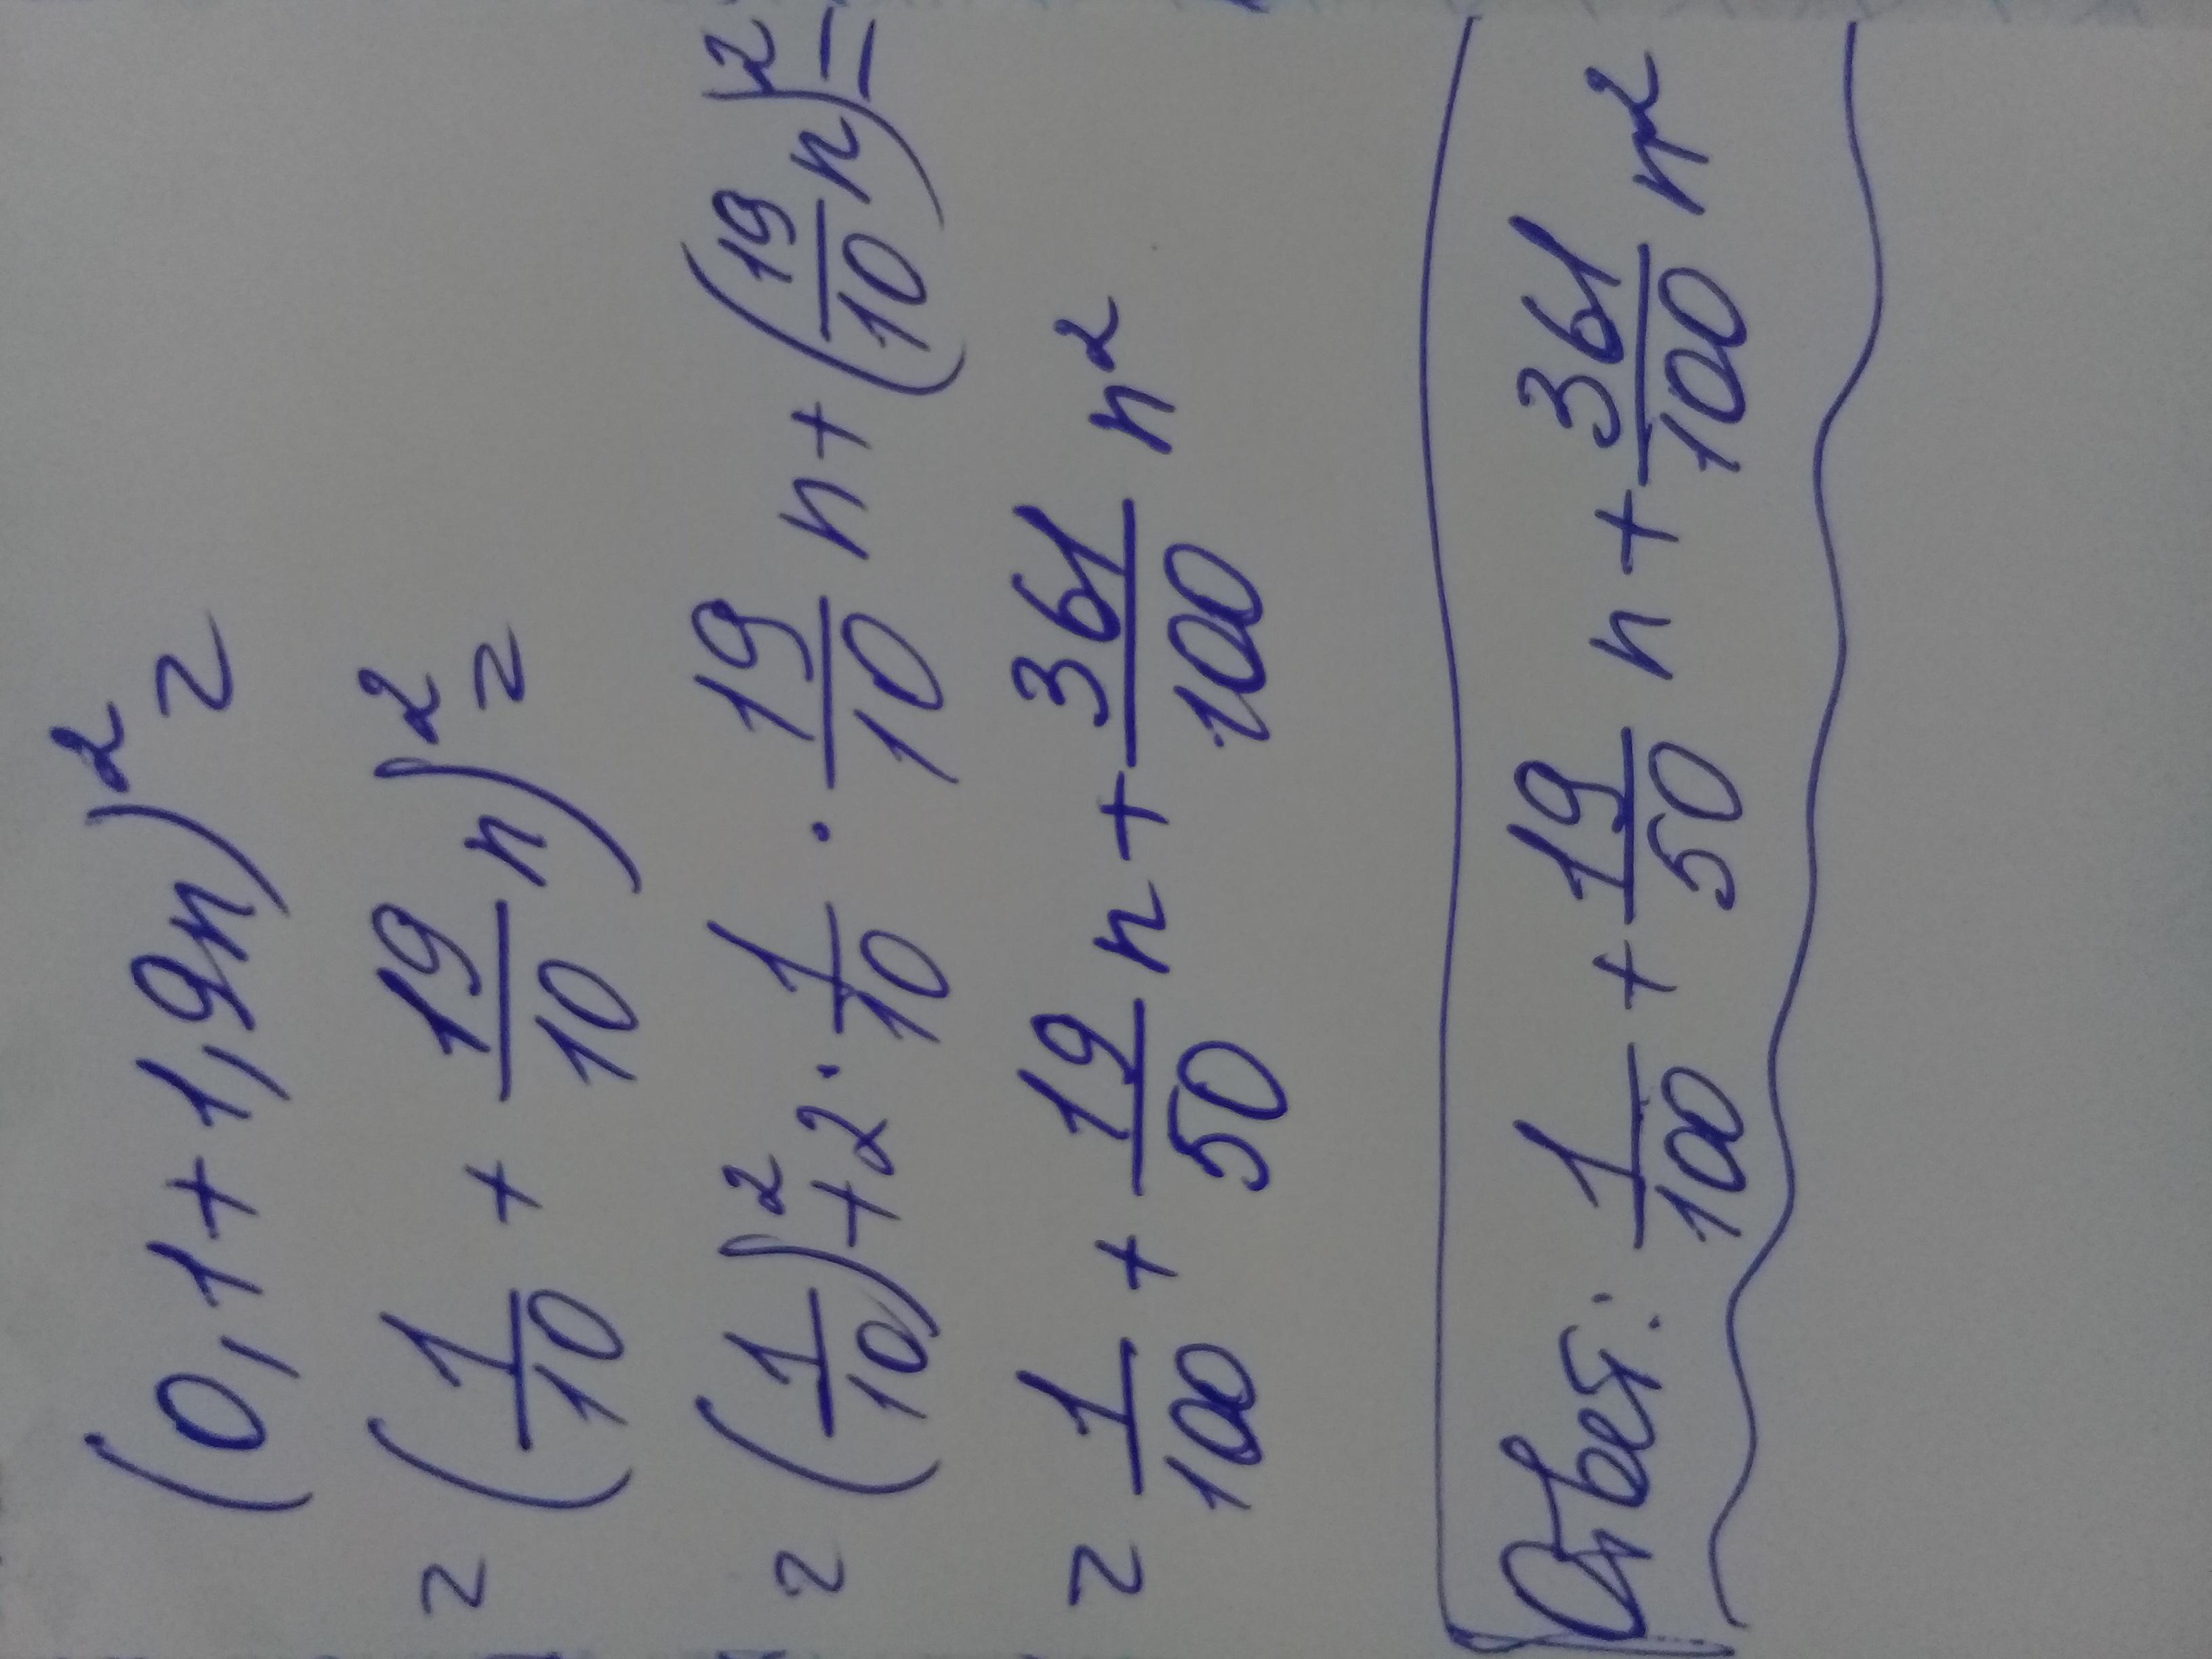 (0,1 + 1,9n)² =
= (1/10 + 19/10 n)² =
= (1/10)² + 2 · 1/10 · 19/10 n + (19/10 n)² =
= 1/100 + 19/50 n + 361/100 n²
Ответ: 1/100 + 19/50 n + 361/100 n²